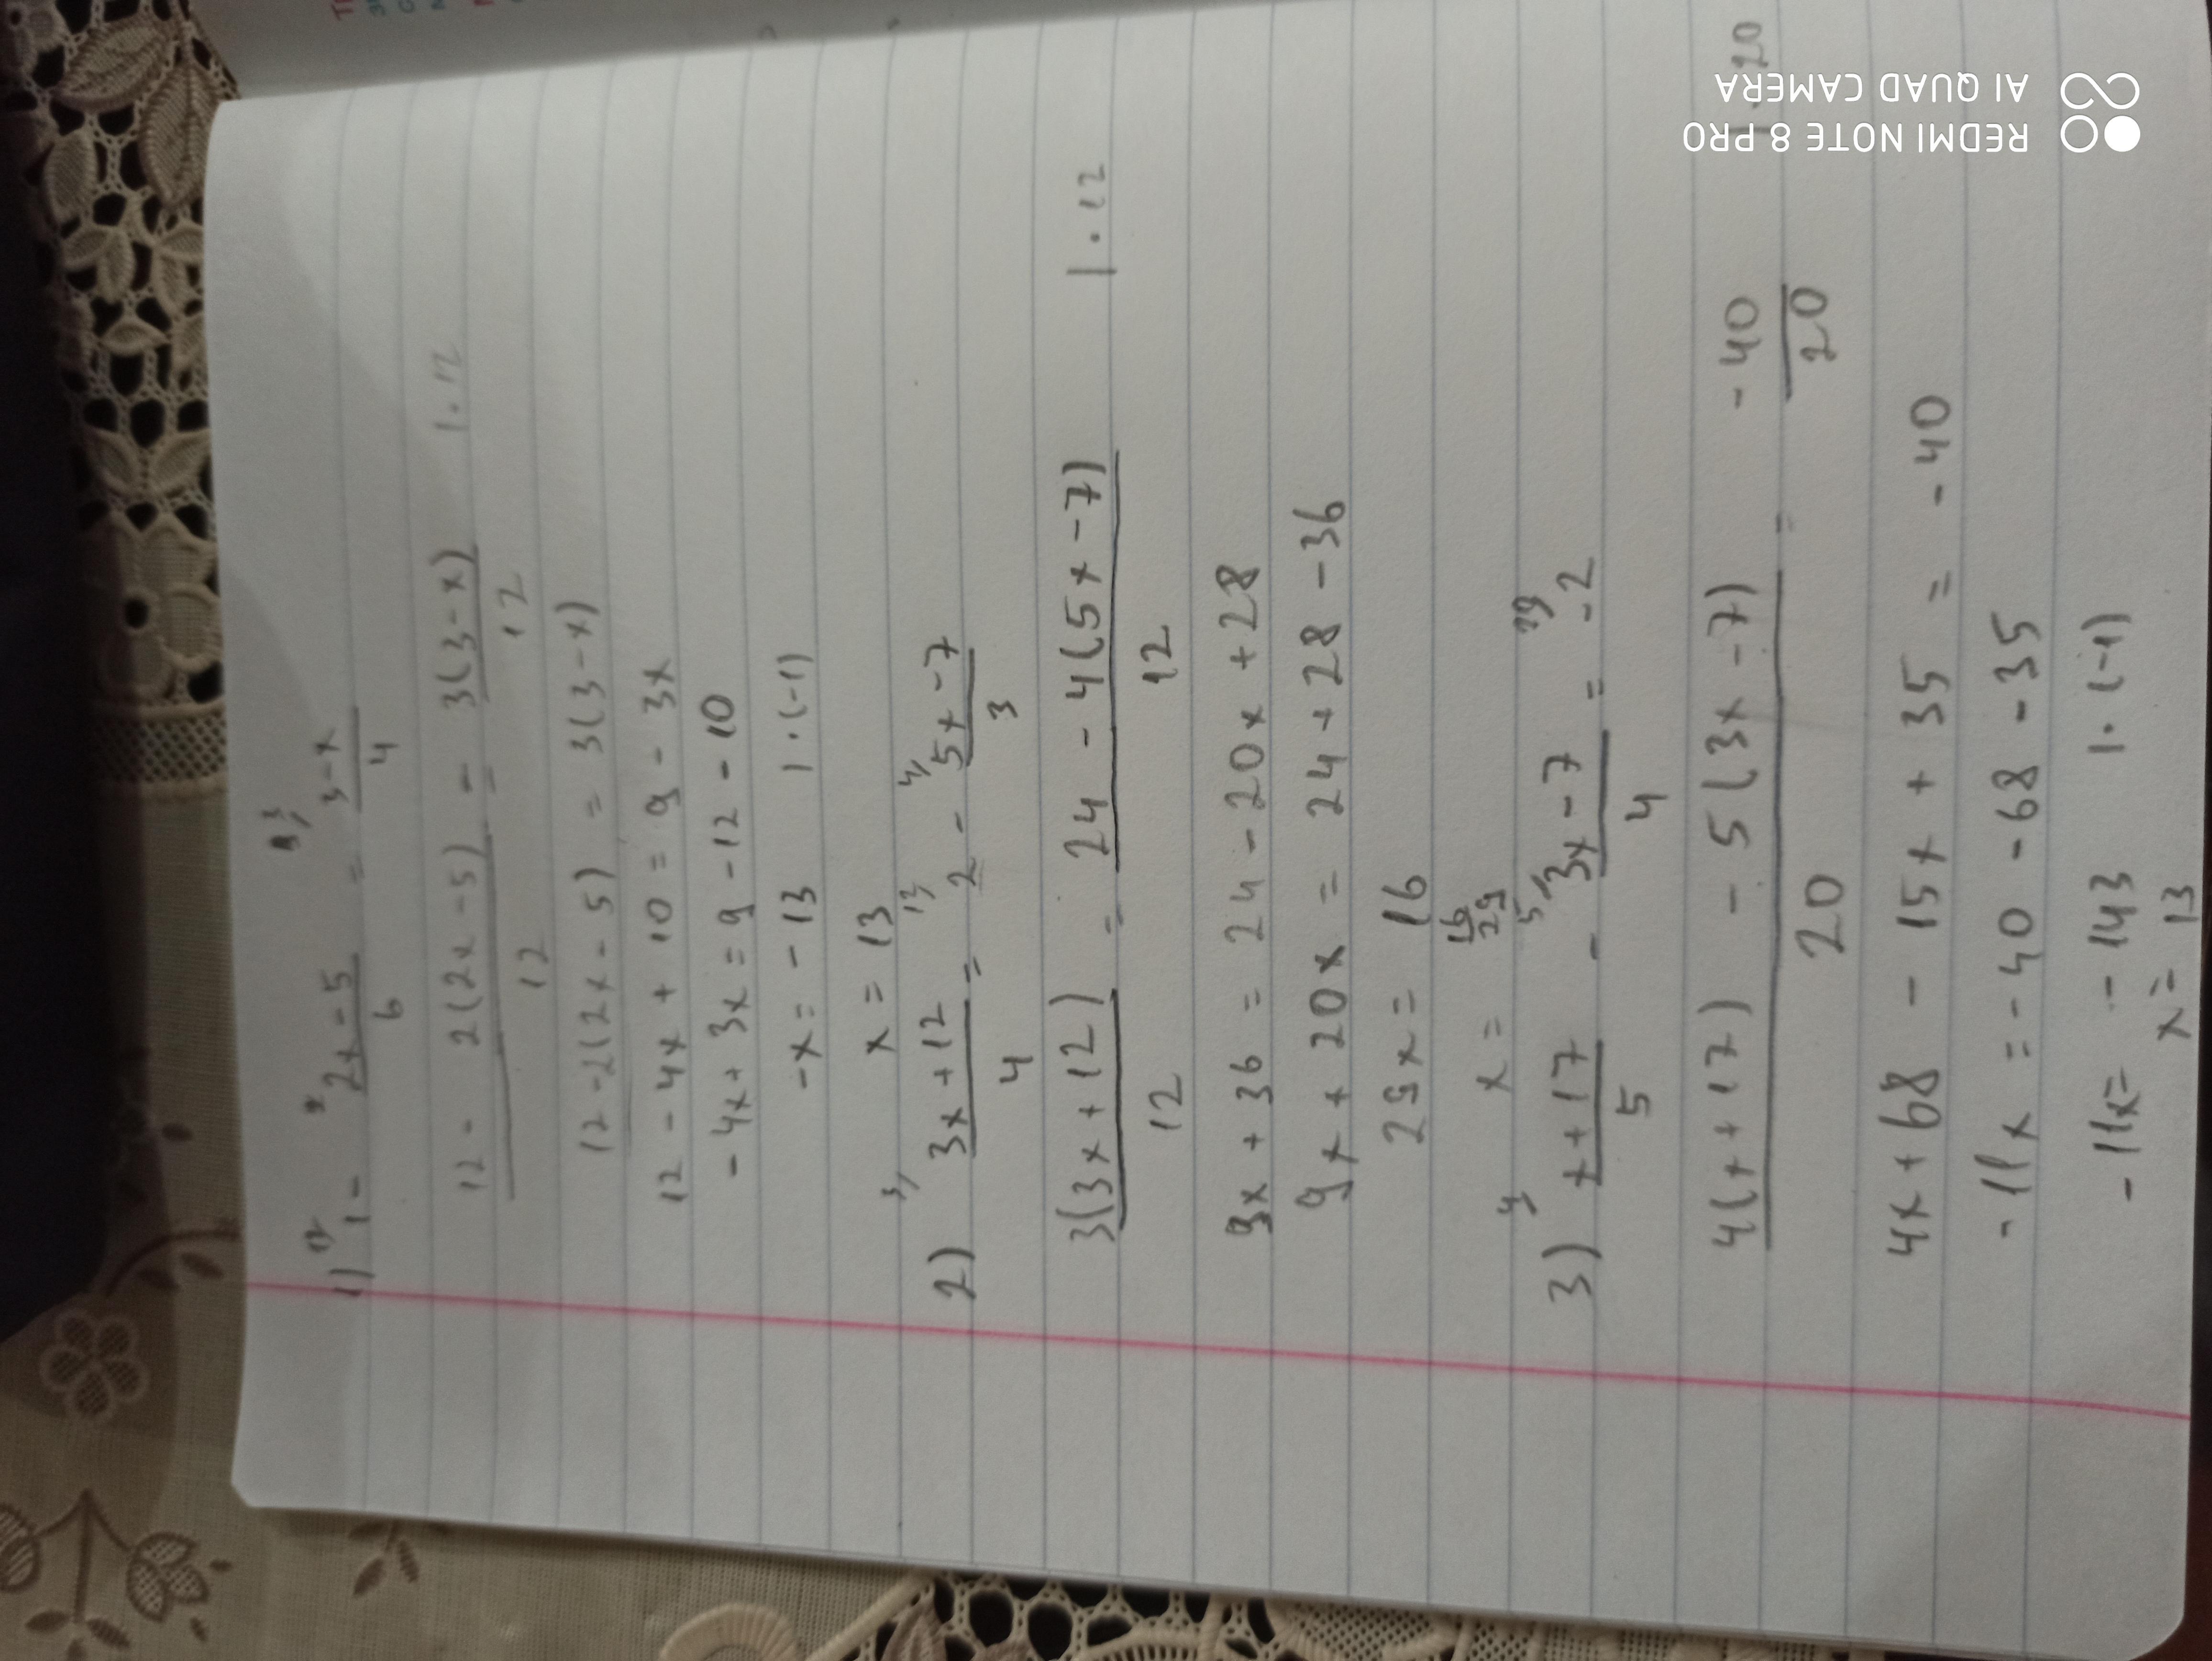 1) 1 - 2x-5/6 = 3-x/4
12 - 2(2x-5)/12 = 3(3-x)/12 |·12
12-2(2x-5) = 3(3-x)
12-4x+10=9-3x
-4x+3x=9-12-10
-x=-13 |·(-1)
x=13
2) 3x+12/4 = 2 - 5x-7/3
3(3x+12)/12 = 24-4(5x-7)/12 |·12
9x+36=24-20x+28
9x+20x=24+28-36
29x=16
x=16/29
3) x+17/5 - 3x-7/4 = -2
4(x+17) - 5(3x-7)/20 = -40/20 |·20
4x+68-15x+35=-40
-11x=-40-68-35
-11x=-143 |·(-1)
x=13
REDMI NOTE 8 PRO
AI QUAD CAMERA